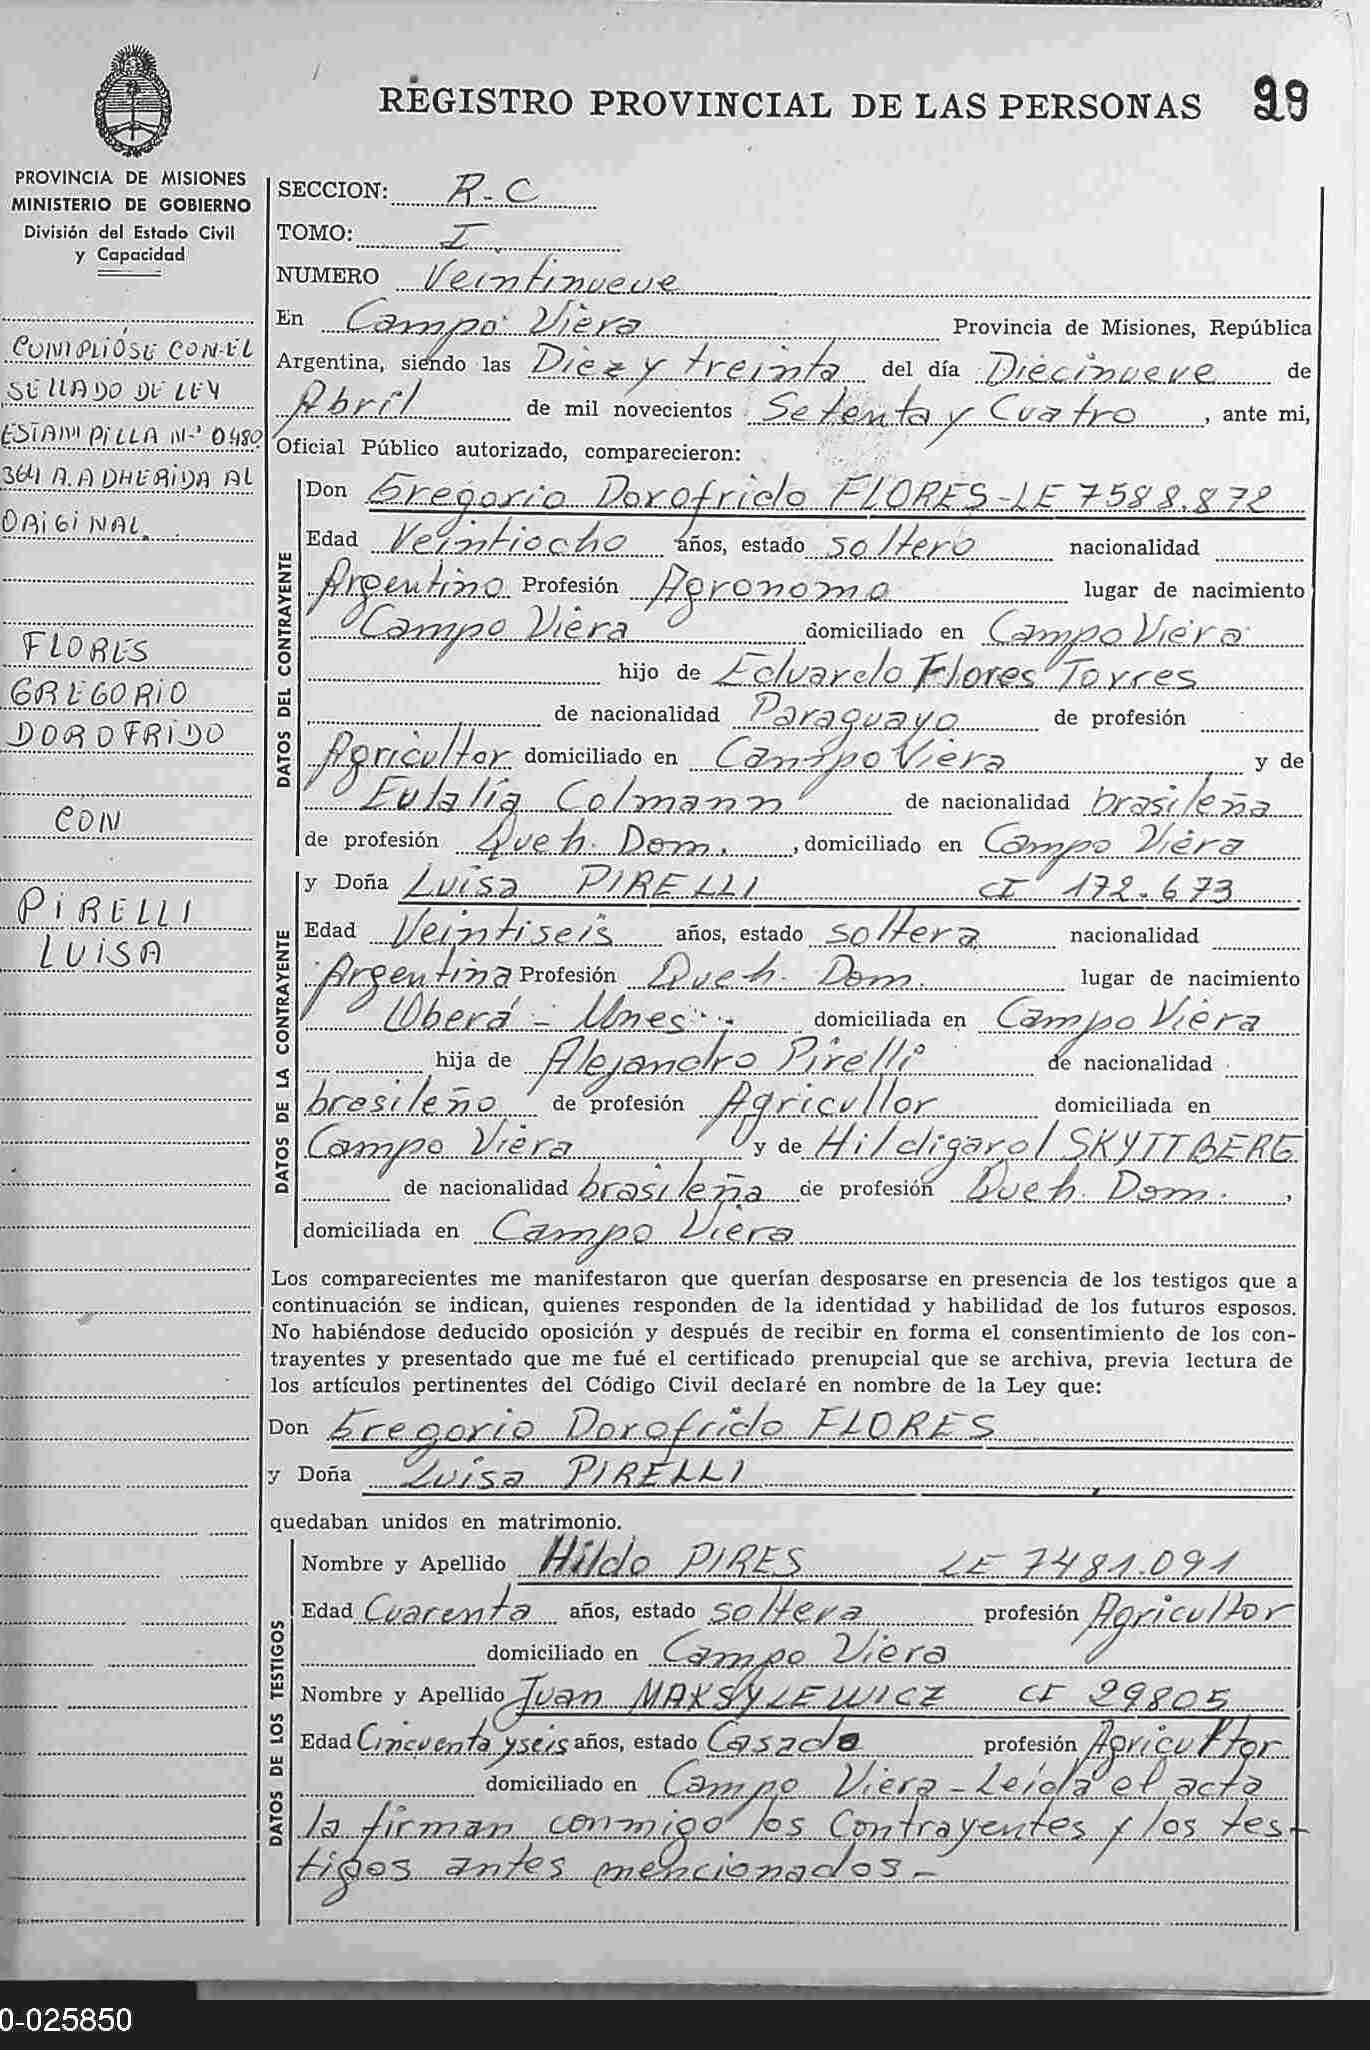 REGISTRO PROVINCIAL DE LAS PERSONAS 29
PROVINCIA DE MISIONES
MINISTERIO DE GOBIERNO
División del Estado Civil
y Capacidad
CUMPLIÓSE CON EL
SELLADO DE LEY
ESTAMPILLA Nº 0480
364 A. ADHERIDA AL
ORIGINAL.
FLORES
GREGORIO
DOROFRIDO
CON
PIRELLI
LUISA
SECCION: R-C
TOMO: I
NUMERO Veintinueve
En Campo Viera Provincia de Misiones, República
Argentina, siendo las Diez y treinta del día Diecinueve de
Abril de mil novecientos Setenta y Cuatro, ante mi,
Oficial Público autorizado, comparecieron:
DATOS DEL CONTRAYENTE
Don Gregorio Dorofrido FLORES-LE 7588.872
Edad Veintiocho años, estado soltero nacionalidad
Argentino Profesión Agronomo lugar de nacimiento
Campo Viera domiciliado en Campo Viera
hijo de Eduardo Flores Torres
de nacionalidad Paraguayo de profesión
Agricultor domiciliado en Campo Viera y de
Eulalia Colmann de nacionalidad brasileña
de profesión Queh. Dom., domiciliado en Campo Viera
DATOS DE LA CONTRAYENTE
y Doña Luisa PIRELLI CI 172.673
Edad Veintiseis años, estado soltera nacionalidad
Argentina Profesión Queh. Dom. lugar de nacimiento
Oberá - Mnes. domiciliada en Campo Viera
hija de Alejandro Pirelli de nacionalidad
brasileño de profesión Agricultor domiciliada en
Campo Viera y de Hildigard SKYTTBERG
de nacionalidad brasileña de profesión Queh. Dom.,
domiciliada en Campo Viera
Los comparecientes me manifestaron que querían desposarse en presencia de los testigos que a
continuación se indican, quienes responden de la identidad y habilidad de los futuros esposos.
No habiéndose deducido oposición y después de recibir en forma el consentimiento de los con-
trayentes y presentado que me fué el certificado prenupcial que se archiva, previa lectura de
los artículos pertinentes del Código Civil declaré en nombre de la Ley que:
Don Gregorio Dorofrido FLORES
y Doña Luisa PIRELLI
quedaban unidos en matrimonio.
DATOS DE LOS TESTIGOS
Nombre y Apellido Hildo PIRES LE 7481.091
Edad Cuarenta años, estado soltera profesión Agricultor
domiciliado en Campo Viera
Nombre y Apellido Juan MAKSYLEWICZ CI 29805
Edad Cincuenta y seis años, estado Casado profesión Agricultor
domiciliado en Campo Viera - Leida el acta
la firman conmigo los Contrayentes y los tes-
tigos antes mencionados -
0-025850